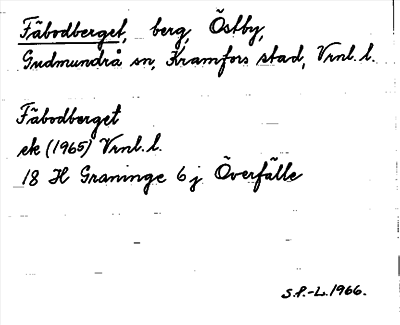 Fäbodberget, berg, Östby,
Gudmundrå sn, Kramfors stad, Vrnl. l.
Fäbodberget
ek (1965) Vrnl. l.
18 H Graninge 6 j Överfälle
S.P.-L. 1966.